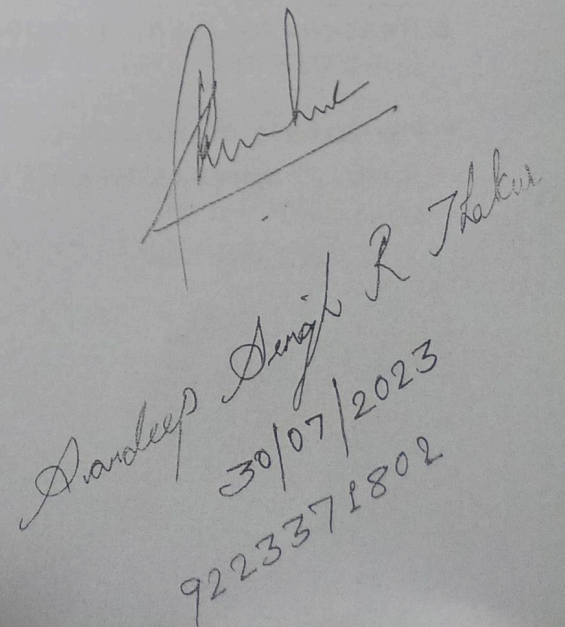 Sandeep Singh R Thakur
30/07/2023
9223371802